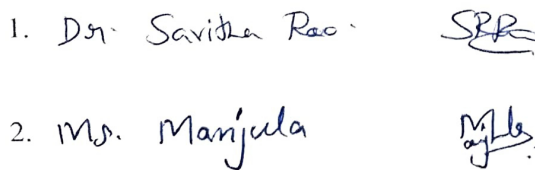 1. Dr. Savitha Rao.
2. Ms. Manjula